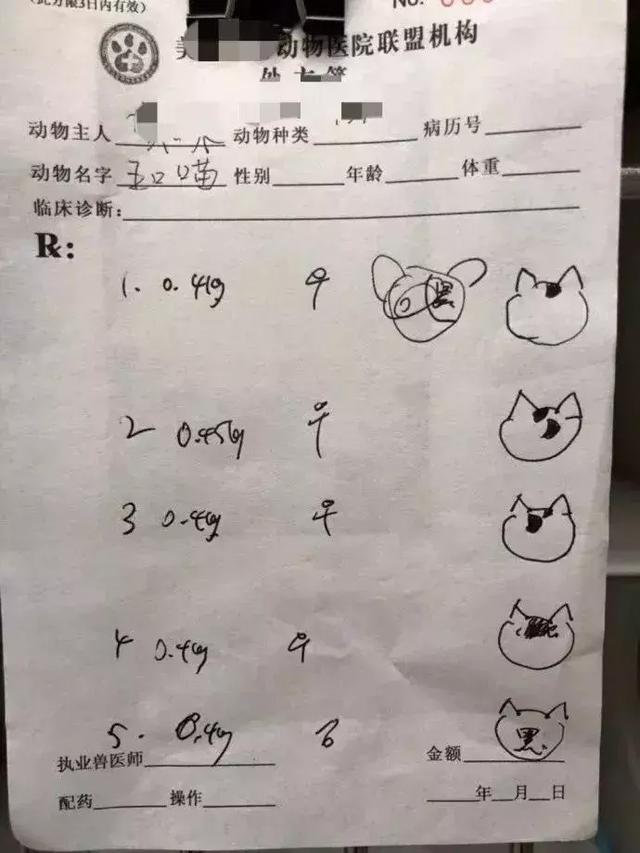 (此方限3日内有效) No.
美 动物医院联盟机构
处方笺
动物主人 动物种类 病历号
动物名字 五口喵 性别 年龄 体重
临床诊断:
Rx:
1. 0.41g ♀ 黑
2 0.45kg ♀
3 0.4kg ♀
4 0.4kg ♀
5. 0.4kg 黑
执业兽医师 金额
配药 操作 年 月 日